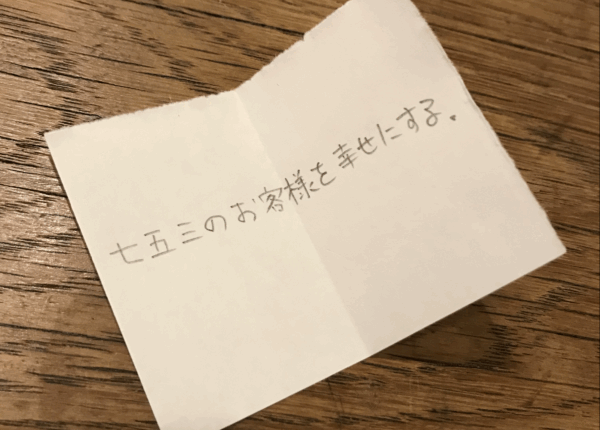 七五三のお客様を幸せにする。